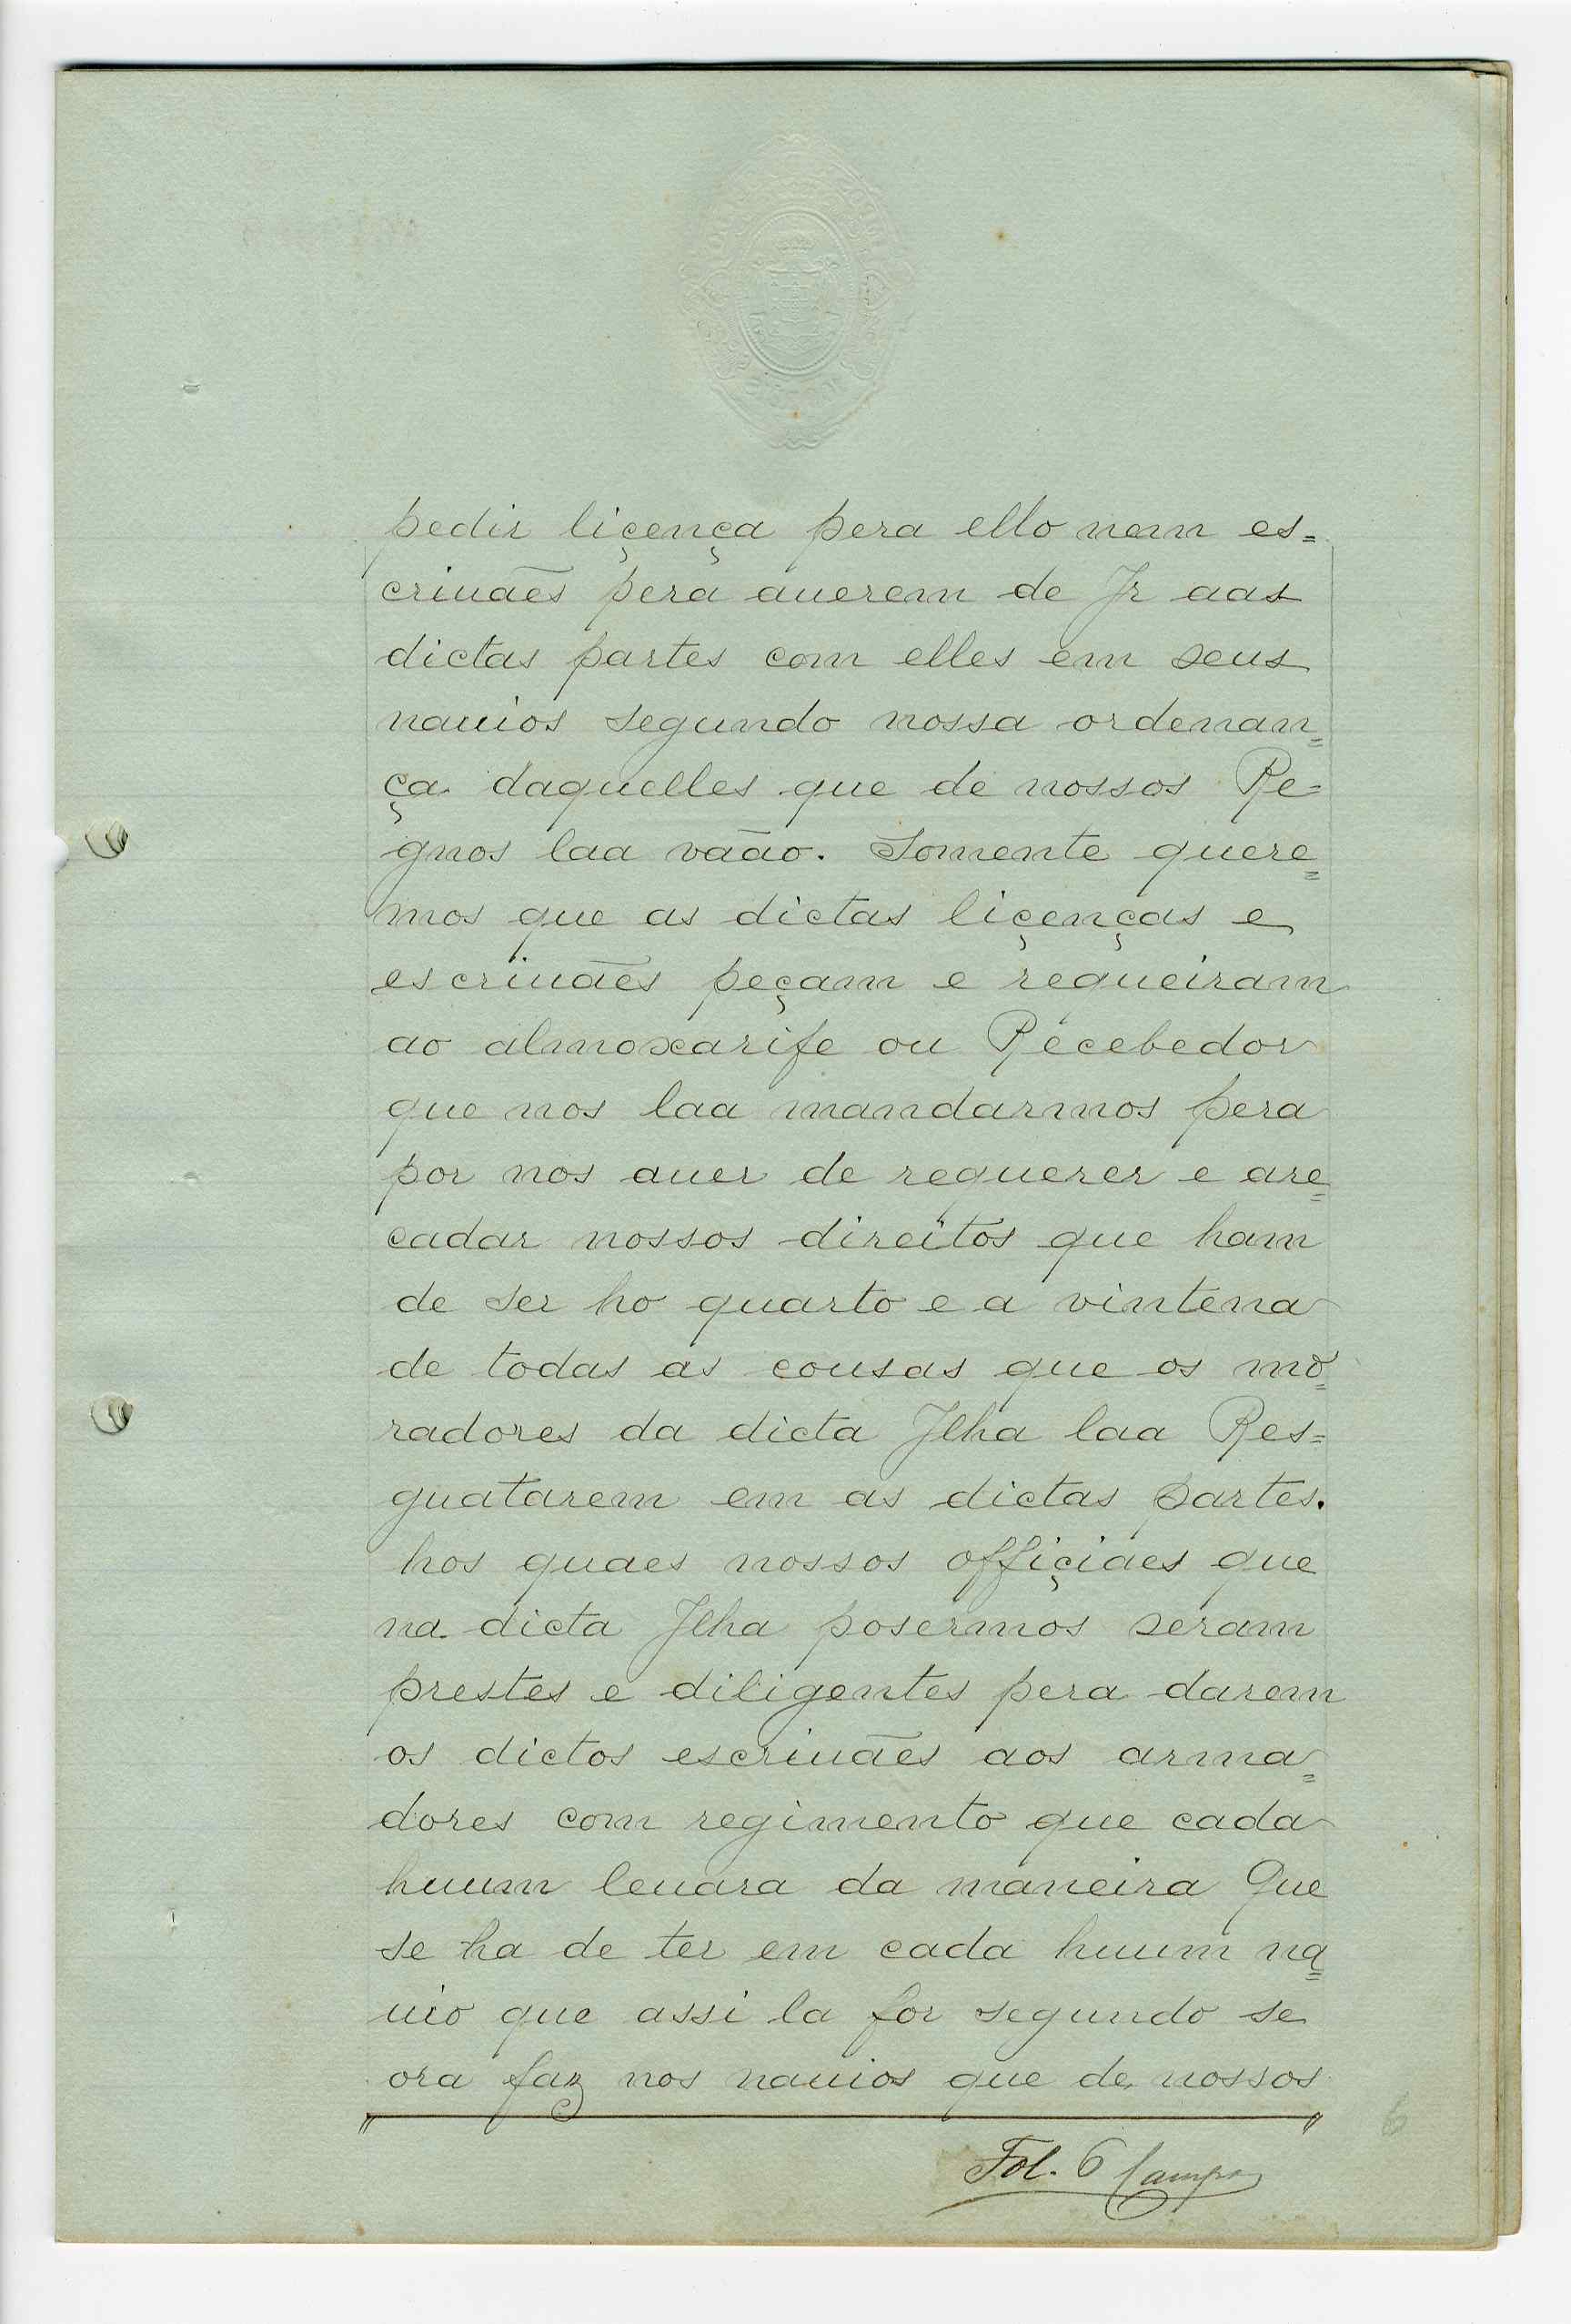 pedir liçença pera ello nem es=
criuaẽs pera auerem de Jr aas
dictas partes com elles em seus
nauios segundo nossa ordenan=
ça daquelles que de nossos Re=
gnos laa vaão. Somente quere=
mos que as dictas liçenças e
escriuaẽs peçam e requeiram
ao almoxarife ou Recebedor
que nos laa mandarmos pera
por nos auer de requerer e are=
cadar nossos direitos que ham
de ser ho quarto e a vintena
de todas as cousas que os mo=
radores da dicta Jlha laa Res=
guatarem em as dictas partes.
hos quaes nossos offiçiaes que
na dicta Jlha posermos seram
prestes e diligentes pera darem
os dictos escriuaẽs aos arma=
dores com regimento que cada
huum leuara da maneira Que
se ha de ter em cada huum na=
uio que assi la for segundo se
ora faz nos nauios que de nossos
Fol. 6 Campos
6